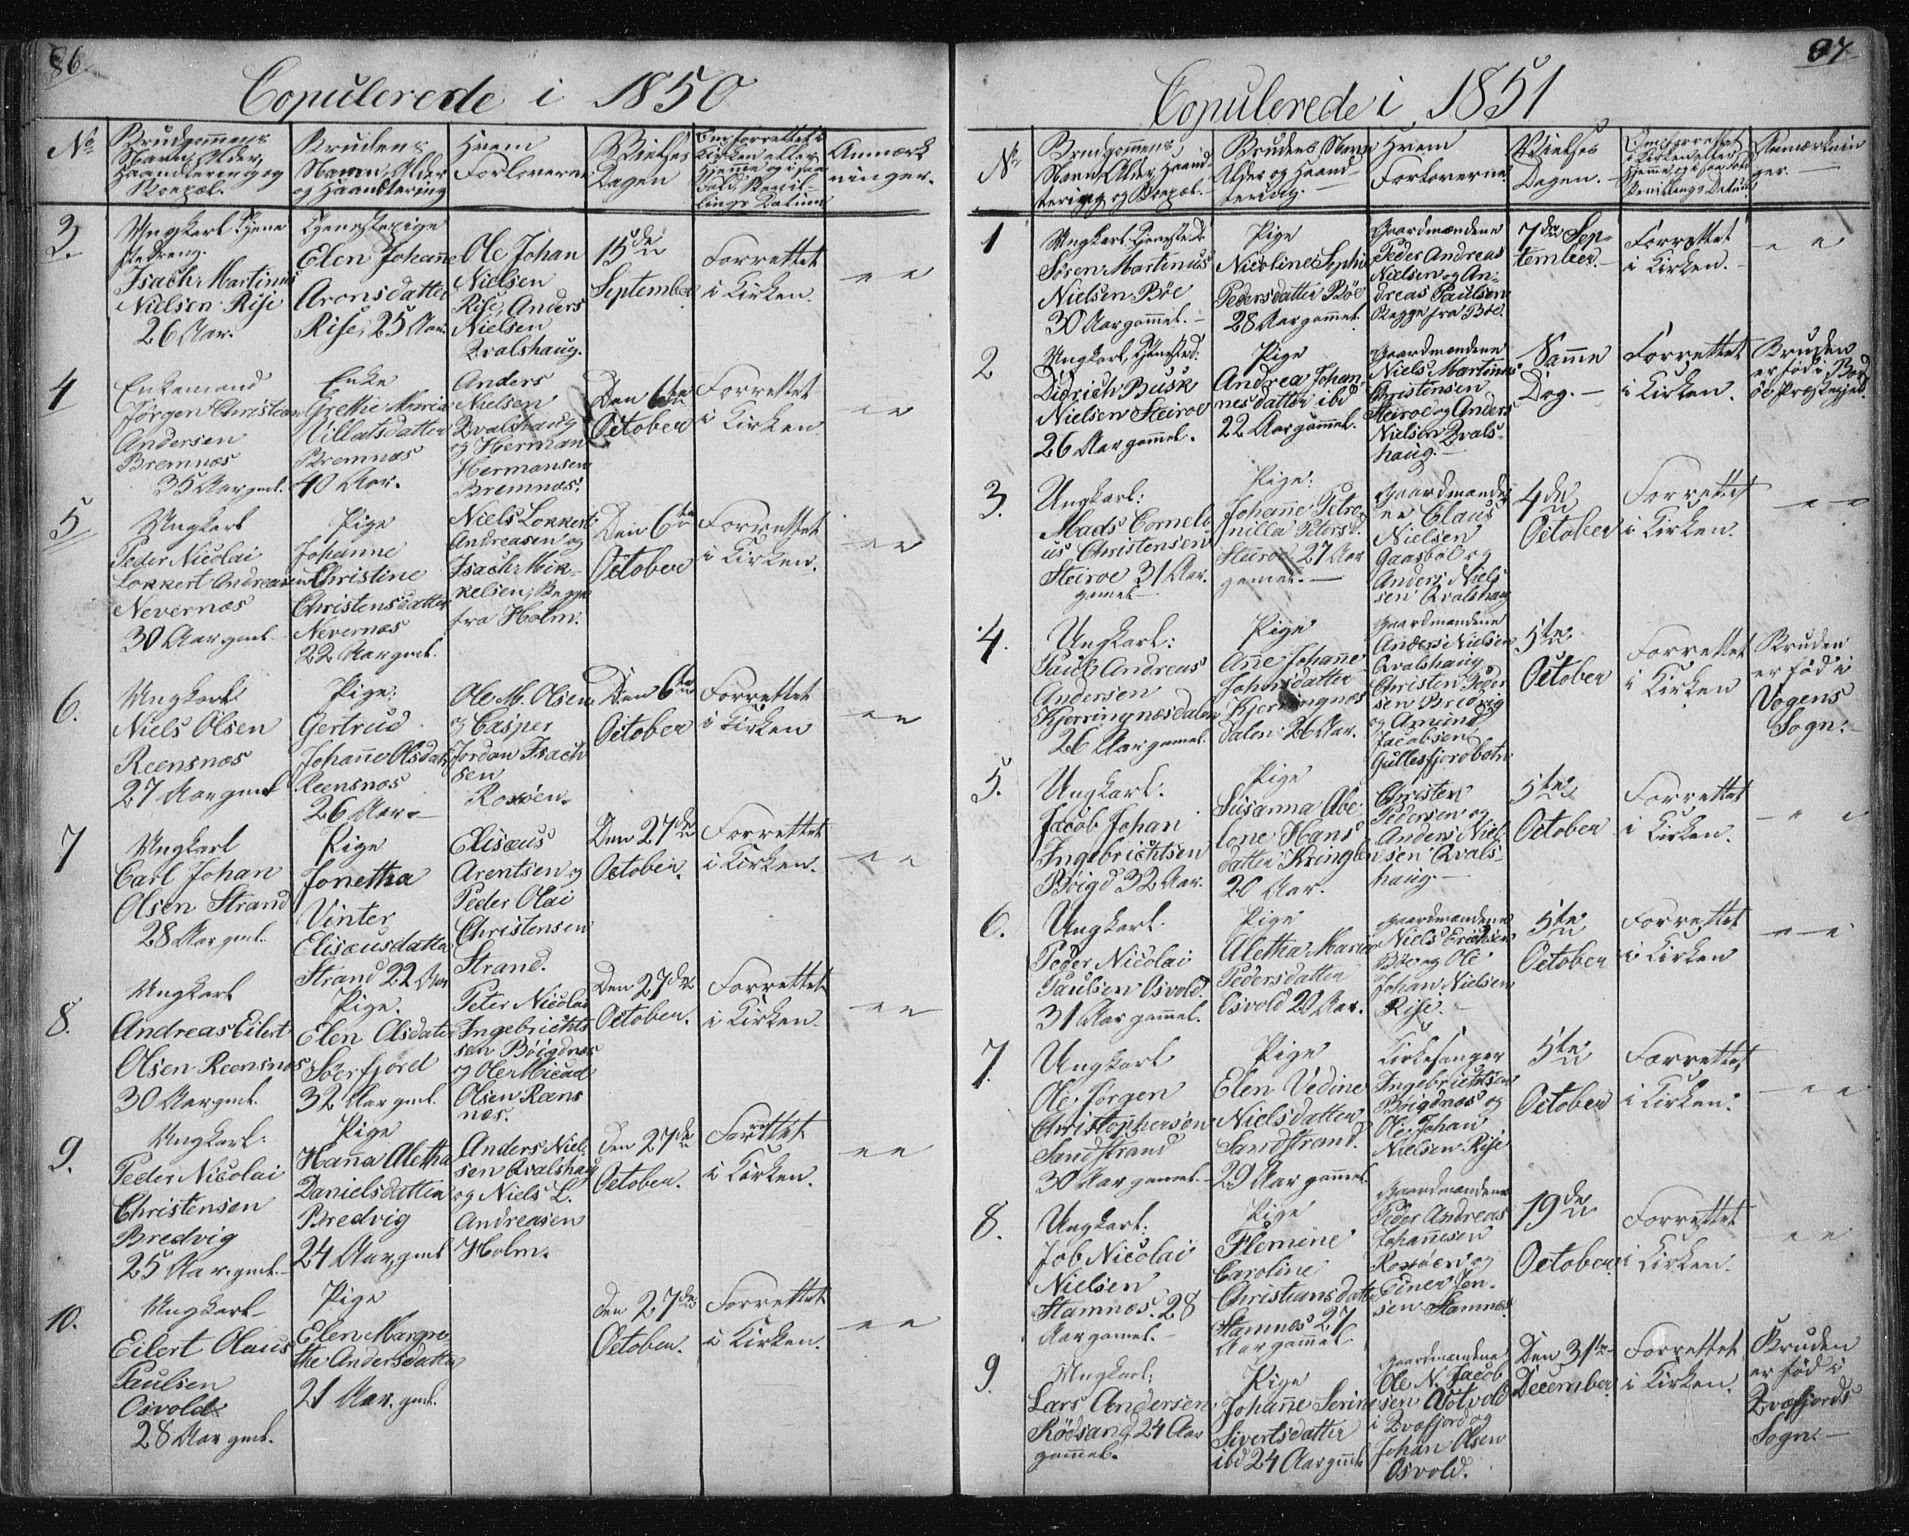 86
Copulerede i 1850
No
Brudgommens
Navn, Alder,
Haandtering og
Boepæl.
Brudens
Navn, Alder
og Haandtering
Hvem
Forlovere
Vielses
Dagen
Om forrettet i
Kirken eller
hjemme og i saa
Fald Bevil-
lings Datum
Anmærk
ninger.
3.
Ungkarl Tjene
ste Dreng.
Isach Martinus
Nielsen Rise
26 Aar.
Tjenestepige
Elen Johanne
Aronsdatter
Rise, 25 Aar.
Ole Johan
Nielsen
Rise, Anders
Nielsen
Qvalshaug.
15de
September
Forrettet
i Kirken.
" "
4
Enkemand
Jörgen Christian
Andersen
Bremnæs
35 Aar gml.
Enke
Grethe Maria
Villatsdatter
Bremnæs
40 Aar.
Anders
Nielsen
Qvalshaug
og Herman
Hermansen
Bremnæs.
Den 6te
October
Forrettet
i Kirken.
" "
5
Ungkarl
Peder Nicolai
Lokkert Andreasen
Nevernæs
30 Aar gml.
Pige
Johanne
Christine
Christensdatter
Nevernæs
22 Aar gml.
Niels Lokkert
Andreasen og
Isach Mik-
kelsen, Begge
fra Holm.
Den 6te
October
Forrettet
i Kirken.
" "
6.
Ungkarl
Niels Olsen
Reensnæs
27 Aar gml
Pige.
Gertrud
Johanne Olsdatt
Reensnæs
26 Aar.
Ole M. Olsen
og Casper
Jordan Isach
sen
Roxöen.
Den 6te
October
Forrettet
i Kirken
" "
7
Ungkarl
Carl Johan
Olsen Strand
28 Aar gml.
Pige
Jonetha
Vinter
Elisæusdatter
Strand 22 Aar
Elisæus
Arentsen og
Peder Olai
Christensen
Strand.
Den 27de
October.
Forrettet
i Kirken.
" "
8.
Ungkarl
Andreas Eilert
Olsen Reensnæs
30 Aar gml.
Pige.
Elen Olsdatter
Söerfjord
32 Aar gml.
Peter Nicolai
Ingebrichts
sen Böigdnæs
og Ole Micael
Olsen Reens
næs.
Den 27de
October.
Forrettet
i Kirken.
" "
9.
Ungkarl.
Peder Nicolai
Christensen
Bredvig
25 Aar. gml.
Pige
Hana Aletha
Danielsdatter
Bredvig
24 Aar gml
Anders Niel-
sen Qvalshaug
og Niels L.
Andreasen
Holm.
Den 27de
October.
Forrettet
i Kirken.
" "
10.
Ungkarl
Eilert Olaus
Paulsen
Osvold.
28 Aar gml.
Pige
Elen Margre
the Andersdatter
21 Aar. gml.
den 27de
October.
Forrettet
i Kirken.
" "
87
Copulerede i 1851
No
Brudgommens,
Navn Alder, Haand
tering og Boepæl.
Brudens Navn
Alder og Haand-
tering.
Hvem
Forlovere.
Vielses
Dagen.
Om forrettet
i Kirken eller
hjemme og i saa Fald
Bevillings Datum
Anmærknin
ger.
1
Ungkarl. Tjeneste D.
Sören Martinus
Nielsen Böe
30 Aar gammel.
Pige
Nicoline Sophie
Pedersdatter Böe
28 Aar gammel.
Gaardmændene
Peder Andreas
Nielsen og An-
dreas Paulsen
Begge fra Böe.
7de Sep-
tember.
Forrettet
i Kirken.
" "
2
Ungkarl, Tjenested:
Didrich Busk
Nielsen Steiroe
26 Aar gammel.
Pige
Andrea Johan-
nesdatter ibd
22 Aar gammel.
Gaardmændene
Niels Martinus
Christensen
Steiroe og Anders
Nielsen Qvals-
haug.
Samme
Dag.
Forrettet
i Kirken.
Bruden
er föd i Bod
öe Præstegjeld.
3.
Ungkarl:
Mads Corneli-
us Christensen
Steiroe 31 Aar.
gamel
Pige:
Johanne Petro
nilla Petersd.
Steiroe 27 Aar
gamel.
Gaardmænde
ne Claus
Nielsen
Gaasböl og
Anders Niel-
sen Qvalshaug
4de
October
Forrettet
i Kirken.
" "
4.
Ungkarl:
Paul Andreas
Andersen
Kjerringnæsdalen
26 Aar gamel.
Pige
Ane Johanne
Johansdatter
Kjerringnæs
dalen 26 Aar.
Gaardmændene
Anders Nielsen
Qvalshaug,
Christen Peder
sen Bredvig
og Amund
Jacobsen
Gullesfjordbotn
5te
October
Forrettet
i Kirken
Bruden
er föd i
Vogens
Sogn.
5.
Ungkarl.
Jacob Johan
Ingebrichtsen
Böigd 32 Aar.
Pige
Susanna Abe
lone Hans
datter Kringlen
20 Aar.
Christen
Pedersen og
Anders Niel
sen Qvals-
haug.
5te
October
Forrettet
i Kirken.
" "
6.
Ungkarl.
Peder Nicolai
Paulsen Osvold.
31 Aar gammel.
Pige
Aletha Maria
Pedersdatter
Osvold 20 Aar.
Gaardmændene
Niels Erichsen
Böe og Ole
Johan Nielsen
Rise.
5te
October
Forrettet
i Kirken
" "
7.
Ungkarl
Ole Jörgen
Christophersen
Sandstrand
30 Aar gamel.
Pige
Elen Vedine
Nielsdatter
Sandstrand.
29 Aar gammel.
Kirkesanger
Ingebrichtsen
Böigdnæs og
Ole Johan
Nielsen Rise
5te
October
Forrettet
i Kirken.
" "
8.
Ungkarl.
Job Nicolai
Nielsen
Stamnæs. 28
Aar gamel.
Pige
Flemine
Caroline
Christiansdatter
Stamnæs 27
Aar gammel
Gaardmændene
Peder Andreas
Johannesen
Roxöen og
Einer Jon-
sen Stamnæs.
19de
October.
Forrettet
i Kirken.
" "
9.
Ungkarl:
Lars Andersen
Rödsand, 24 Aar
gammel.
Pige
Johanne Serine
Sivertsdatter
ibd 24 Aar gml
Gaardmændene
Ole N. Jacob
sen Astvold
i Qvæfjord og
Johan Olsen
Osvold.
Den 31te
December
Forrettet
i Kirken.
Bruden
er föd i
Qvæfjords
Sogn.